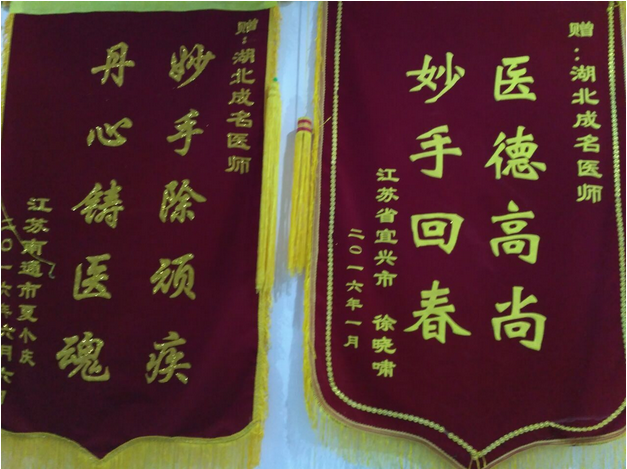 赠：湖北成名医师
妙手除顽疾
丹心铸医魂
江苏南通市夏小庆
二〇一六年六月六日
赠：湖北成名医师
医德高尚
妙手回春
江苏省宜兴市 徐晓啸
二〇一六年一月